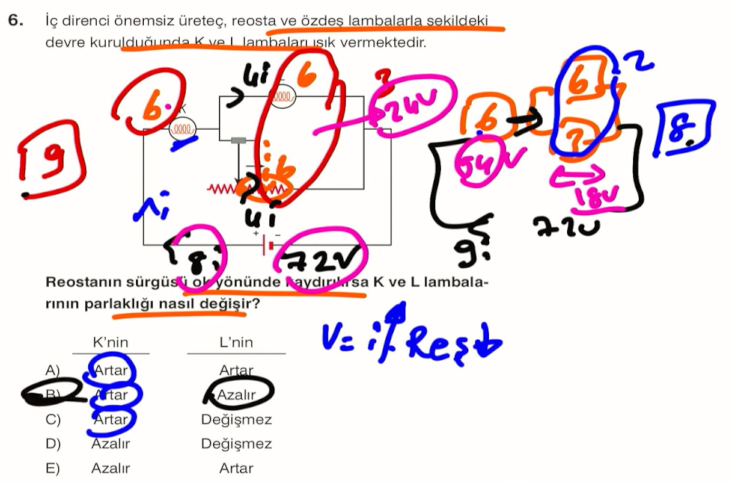 6. İç direnci önemsiz üreteç, reosta ve özdeş lambalarla şekildeki
devre kurulduğunda K ve L lambaları ışık vermektedir.
4i
6
6
K
24V
9
i
6
4i
8i
72V
6
54V
6
2
18V
72V
9i
8
Reostanın sürgüsü ok yönünde kaydırılırsa K ve L lambala-
rının parlaklığı nasıl değişir?
V = i Reş
K'nin L'nin
A) Artar Artar
B) Artar Azalır
C) Artar Değişmez
D) Azalır Değişmez
E) Azalır Artar